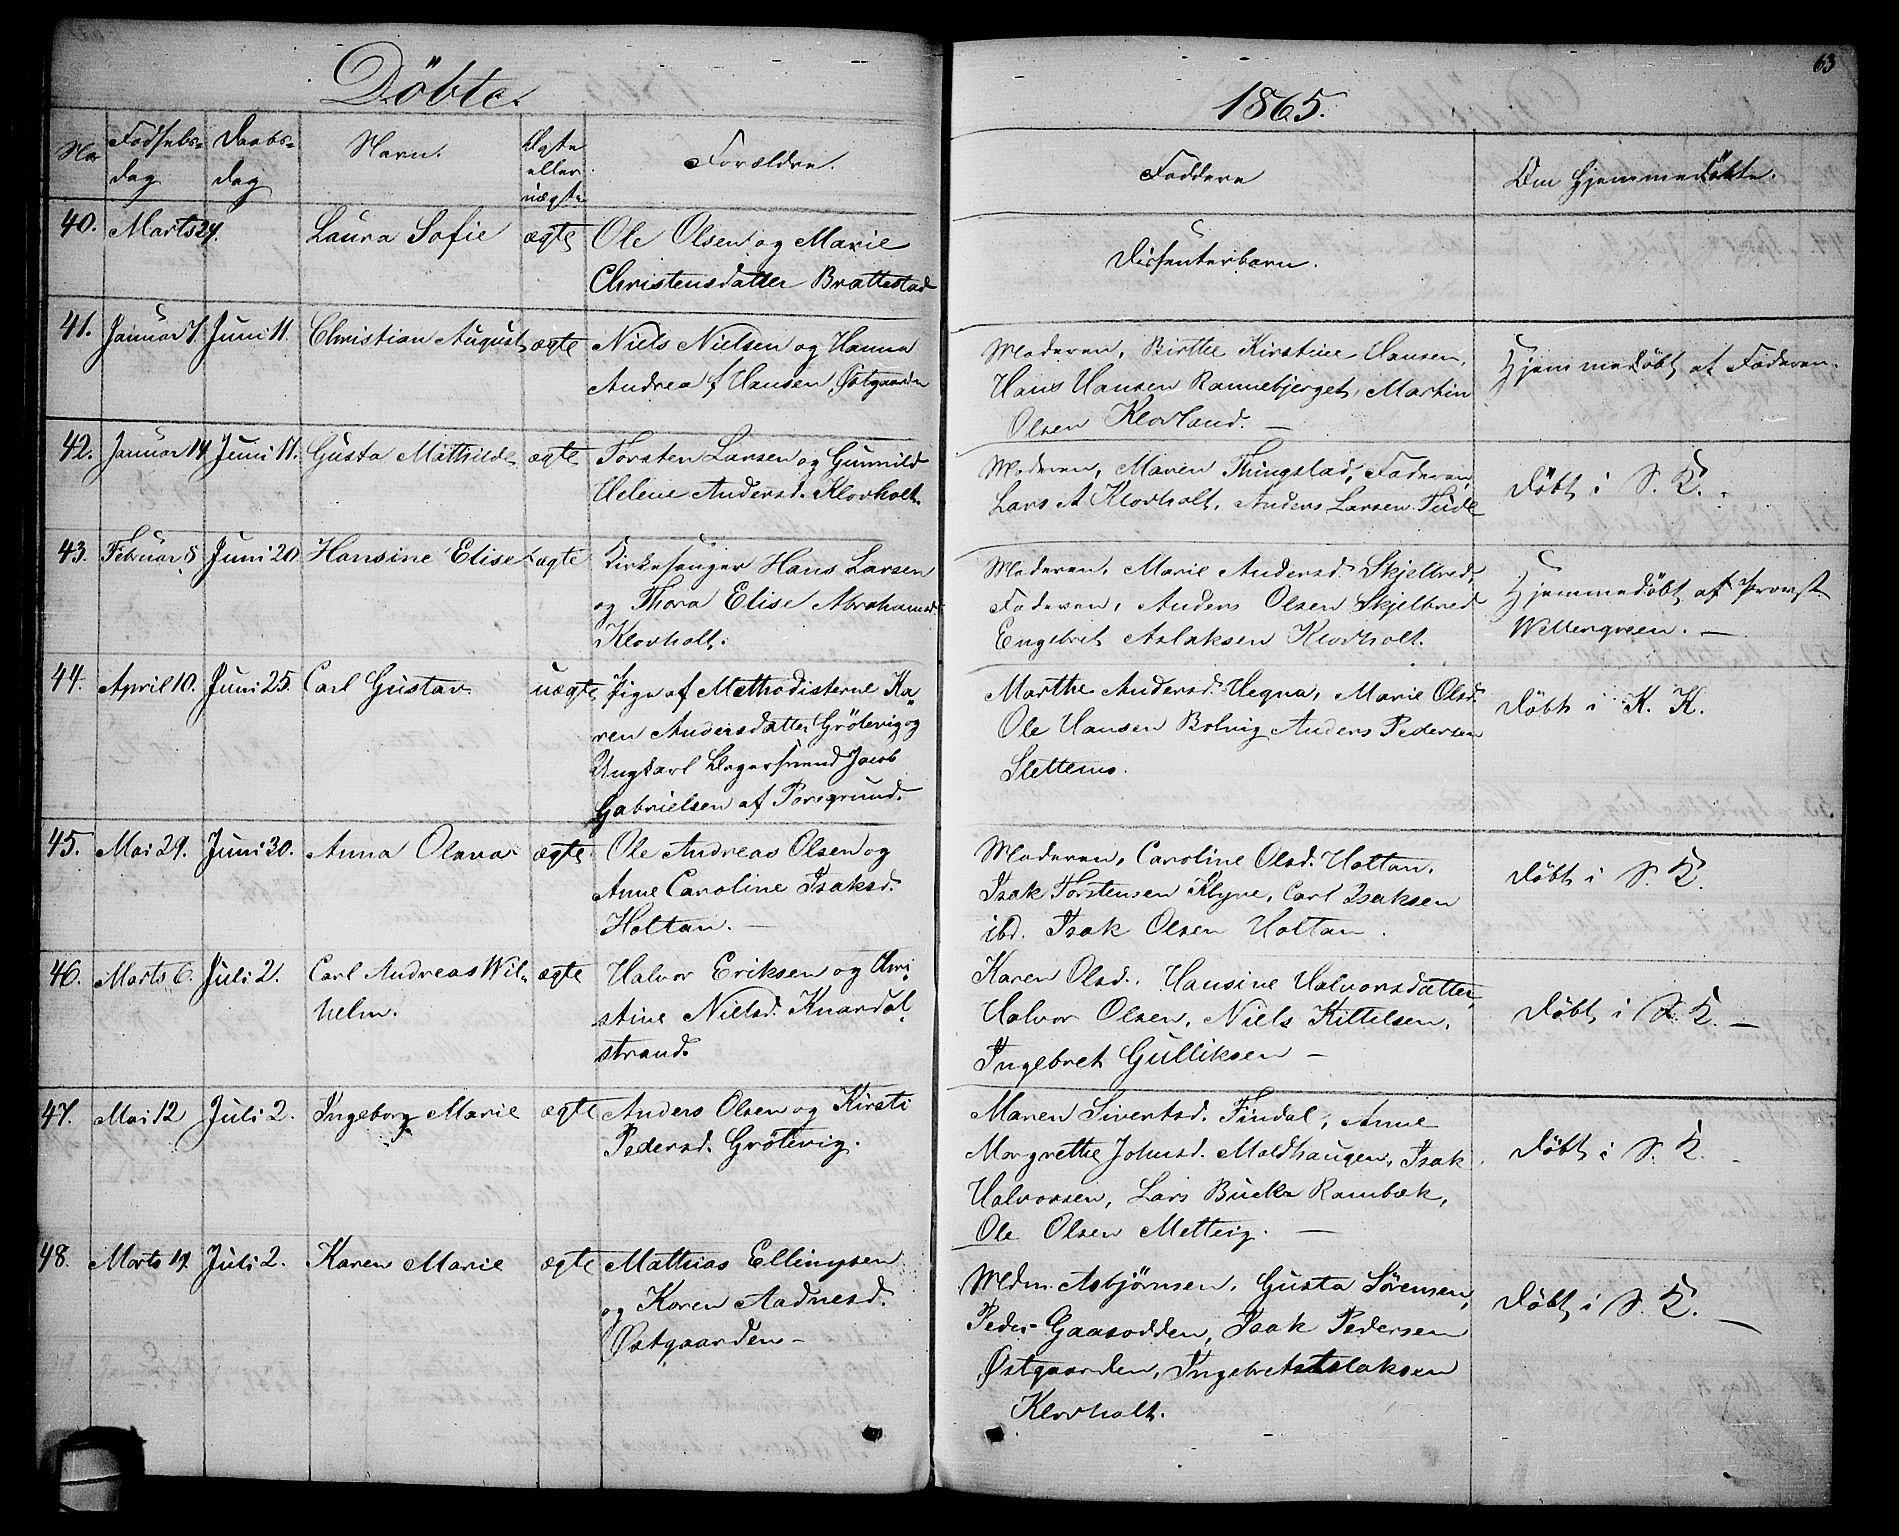 63
Döbte.
1865.
Nor
Fødsels-
dag
Daabs-
dag
Navn.
Ægte
eller
uægte
Forældre.
Faddere
Om hjemmedöbte.
40. Marts 24. Laura Sofie ægte Ole Olsen og Marie
Christensdatter Brattestad
Dissenterbarn.
41. Januar 7. Juni 11. Christian August ægte Niels Nielsen og Hanna
Andrea f Hansen, Østgaarden
Moderen, Birthe Kirstine Hansen,
Hans Hansen Rønnebjerget, Martin
Olsen Klovland. —
Hjemmedöbt af Faderen.
42. Januar 14. Juni 11. Gusta Mathilde ægte Torsten Larsen og Gunnild
Helene Andersd. Klovholt.
Moderen, Maren Thingstad, Faderen,
Lars A Klovholt, Anders Larsen
Döbt i S. K.
43. Februar 8. Juni 20. Hansine Elise ægte Kirkesanger Hans Larsen
og Thora Elise Abrahamsd.
Klovholt.
Moderen, Marie Andersd. Skjelbred,
Faderen, Anders Olsen Skjelbred
Engebret Aslaksen Klovholt.
Hjemmedöbt af Provst
Wettergreen. —
44. April 10. Juni 25. Carl Gustav uægte Pige af Methodisterne Ka-
ren Andersdatter Grötevig og
Ungkarl Dagersvend Jacob
Gabrielsen af Porsgrund.
Marthe Andersd. Hegna, Marie Olsd.
Ole Hansen Bolvig Anders Pedersen
Slettemo.
Döbt i K. K.
45. Mai 29. Juni 30. Anna Olava ægte Ole Andreas Olsen og
Anne Caroline Isaksd.
Holtan. —
Moderen, Caroline Olsd. Holtan,
Isak Torstensen Klyve, Carl Isaksen
ibd. Isak Olsen Holtan.
Döbt i S. K.
46. Marts 6. Juli 2. Carl Andreas Wil-
helm. ægte Halvor Eriksen og Chri-
stine Nielsd. Knardal-
strand.
Karen Olsd., Hansine Halvorsdatter,
Halvor Olsen, Niels Kittelsen,
Ingebret Gulliksen —
Döbt i S. K. —
47. Mai 12 Juli 2. Ingeborg Marie ægte Anders Olsen og Kirsti
Pedersd. Grötevig.
Maren Sivertsd. Findal, Anne
Margrethe Johnsd. Moldhaugen, Isak
Halvorsen, Lars Buckz Rambæk,
Ole Olsen Metteig. —
Döbt i S. K. —
48. Marts 19. Juli 2. Karen Marie ægte Mathias Ellingsen
og Karen Aadnesd.
Østgaarden —
Mdm. Asbjørnsen, Gusta Sörensen,
Peder Gaasodden, Isak Pedersen
Østgaarden, Ingebret Aslaksen
Klovholt.
Döbt i S. K. —